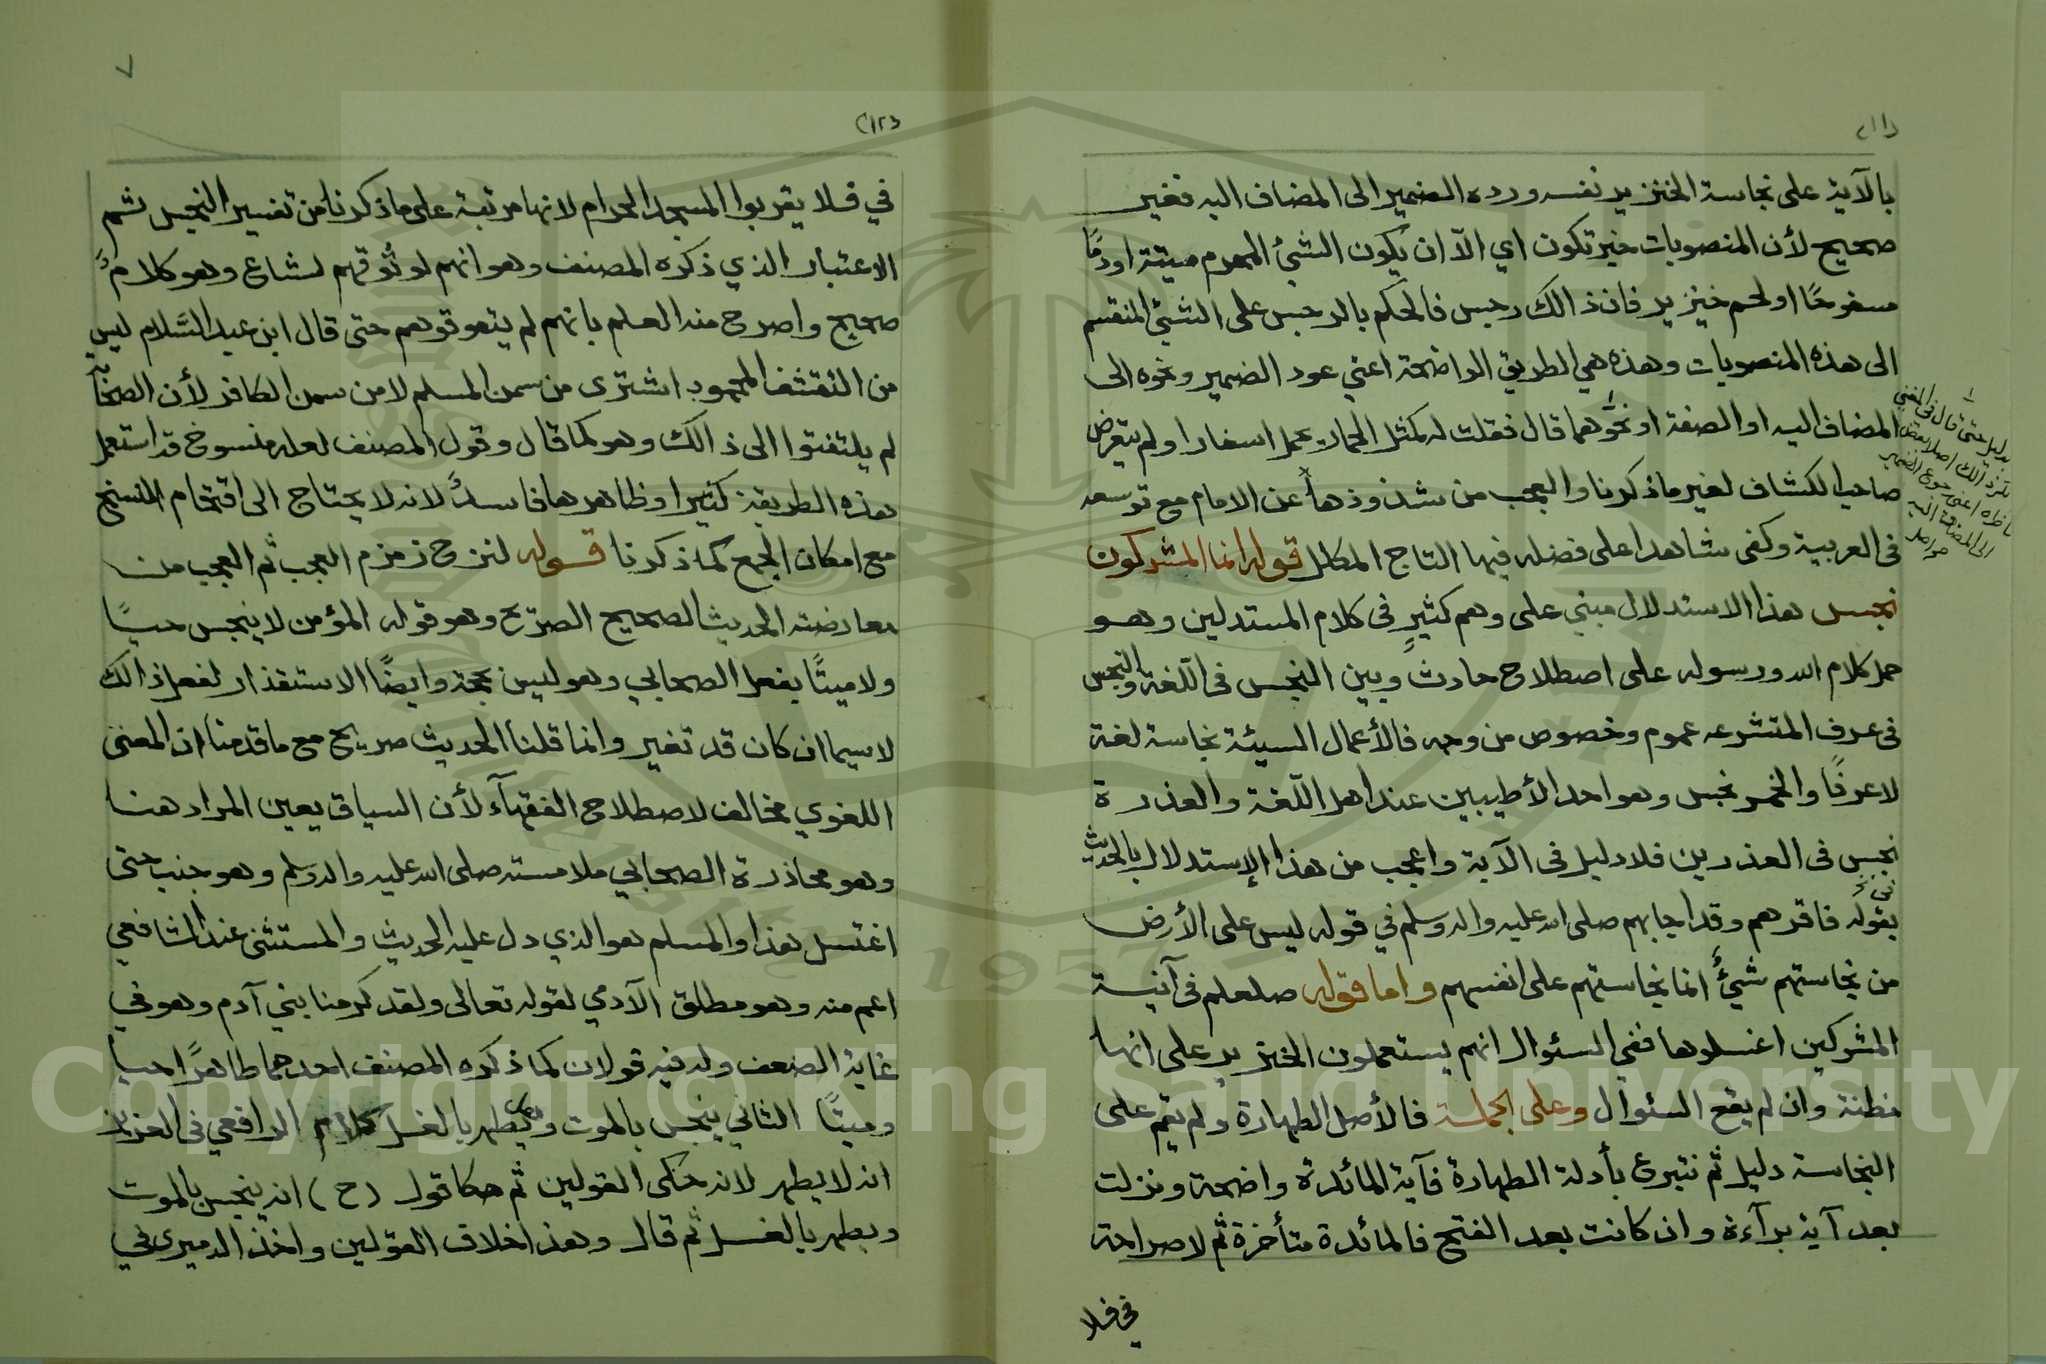 (١١)
بالآية على نجاسة الخنزير نفسه ورده الضمير الى المضاف اليه فغير
صحيح لأن المنصوبات خبر تكون اي الّا ان يكون الشئ المحرم ميتة او دمًا
مسفوحًا او لحم خنزير فان ذالك رجس فالحكم بالرجس على الشئ المنقسم
الى هذه المنصوبات وهذه هي الطريق الواضحة اعني عود الضمير ونحوه الى
المضاف اليه او الصفة او نحوهما قال فقلت له كمثل الحمار يحمل اسفارا ولم يتعرض
صاحب الكشاف لغير ما ذكرنا والعجب من شذوذها عن الامام مع توسعه
في العربية وكفى شاهدا على فضله فيها التاج المكلل قوله انما المشركون
نجس هذا الاستدلال مبني على وهم كثيرٍ في كلام المستدلين وهو
حمل كلام الله ورسوله على اصطلاح حادث وبين النجس في اللّغة والنجس
في عرف المتشرعه عموم وخصوص من وجه فالأعمال السيئة نجاسة لغة
لا عرفًا والخمر نجس وهو احد الأطيبين عند اهل اللّغة والعذرة
نجس في العذرين فلا دليل في الآية واعجب من هذا الإستدلال بالحديث
بقوله فاقرهم وقد اجابهم صلى الله عليه واله وسلم في قوله ليس على الأرض
من نجاستهم شيئٌ انما نجاستهم على انفسهم واما قوله صلعلم في آنية
المشركين اغسلوها ففي السئوال انهم يستعملون الخنزير على انها
مظنة وان لم يقع السئوال وعلى الجملة فالأصل الطهارة ولم يقم على
النجاسة دليل ثم نتبرع بأدلة الطهارة فآية المائدة واضحة ونزلت
بعد آية برآءة وان كانت بعد الفتح فالمائدة متأخرة ثم لا صراحة
في فلا
بدليل حتى قال في المغني
(١٢)
٧
في فلا يقربوا المسجد الحرام لانها مرتبة على ما ذكرنا من تفسير النجس ثم
الاعتبار الذي ذكره المصنف وهو انهم لو توقهم لشاع وهو كلام
صحيح واصرح منه العلم بانهم لم يتعوقوهم حتى قال ابن عبد السّلام ليس
من التقشف المحمود اشترى من سمن المسلم لا من سمن الكافر لأن الصحآ
لم يلتفتوا الى ذالك وهو كما قال وقول المصنف لعله منسوخ قد استعمل
هذه الطريقة كثيرا وظاهرها فاسد لانه لا يحتاج الى اقتحام النسخ
مع امكان الجمع كما ذكرنا قوله لنزح زمزم العجب ثم العجب من
معارضته الحديث الصحيح الصرّيح وهو قوله المؤمن لا ينجس حيًا
ولا ميتًا بفعل الصحابي وهو ليس بحجة وايضًا الاستقذار لفعل ذالك
لا سيما ان كان قد تغير وانما قلنا الحديث صريح مع ما قدمنا ان المعنى
اللغوي مخالف لاصطلاح الفقهآء لأن السياق يعين المراد هنا
وهو محاذرة الصحابي ملامسته صلى الله عليه واله وسلم وهو جنب حتى
اغتسل هذا والمسلم هو الذي دل عليه الحديث والمستثنى عند الشافعي
اعم منه وهو مطلق الآدمي لقوله تعالى ولقد كرمنا بني آدم وهو في
غاية الضعف وله فيه قولان كما ذكره المصنف احدهما طاهرًا حيا
وميتًا الثاني ينجس بالموت ويطهر بالغسل كلام الرافعي في العزيز
انه لا يطهر لانه حكى القولين ثم حكا قول (ح) انه ينجس بالموت
ويطهر بالغسل ثم قال وهذا خلاف القولين واخذ الدميري في
Copyright © King Saud University
1957